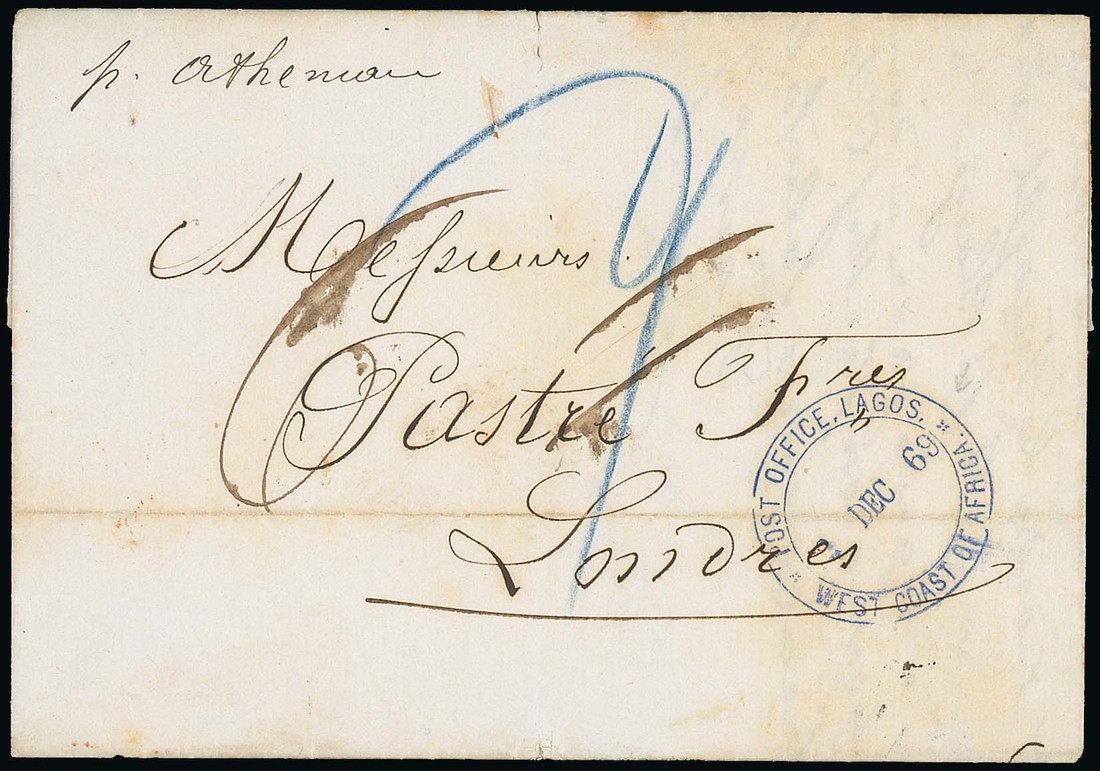 p. Athenian
Messieurs
Pastré Fres
Londres
POST OFFICE, LAGOS.
WEST COAST OF AFRICA.
DEC 69